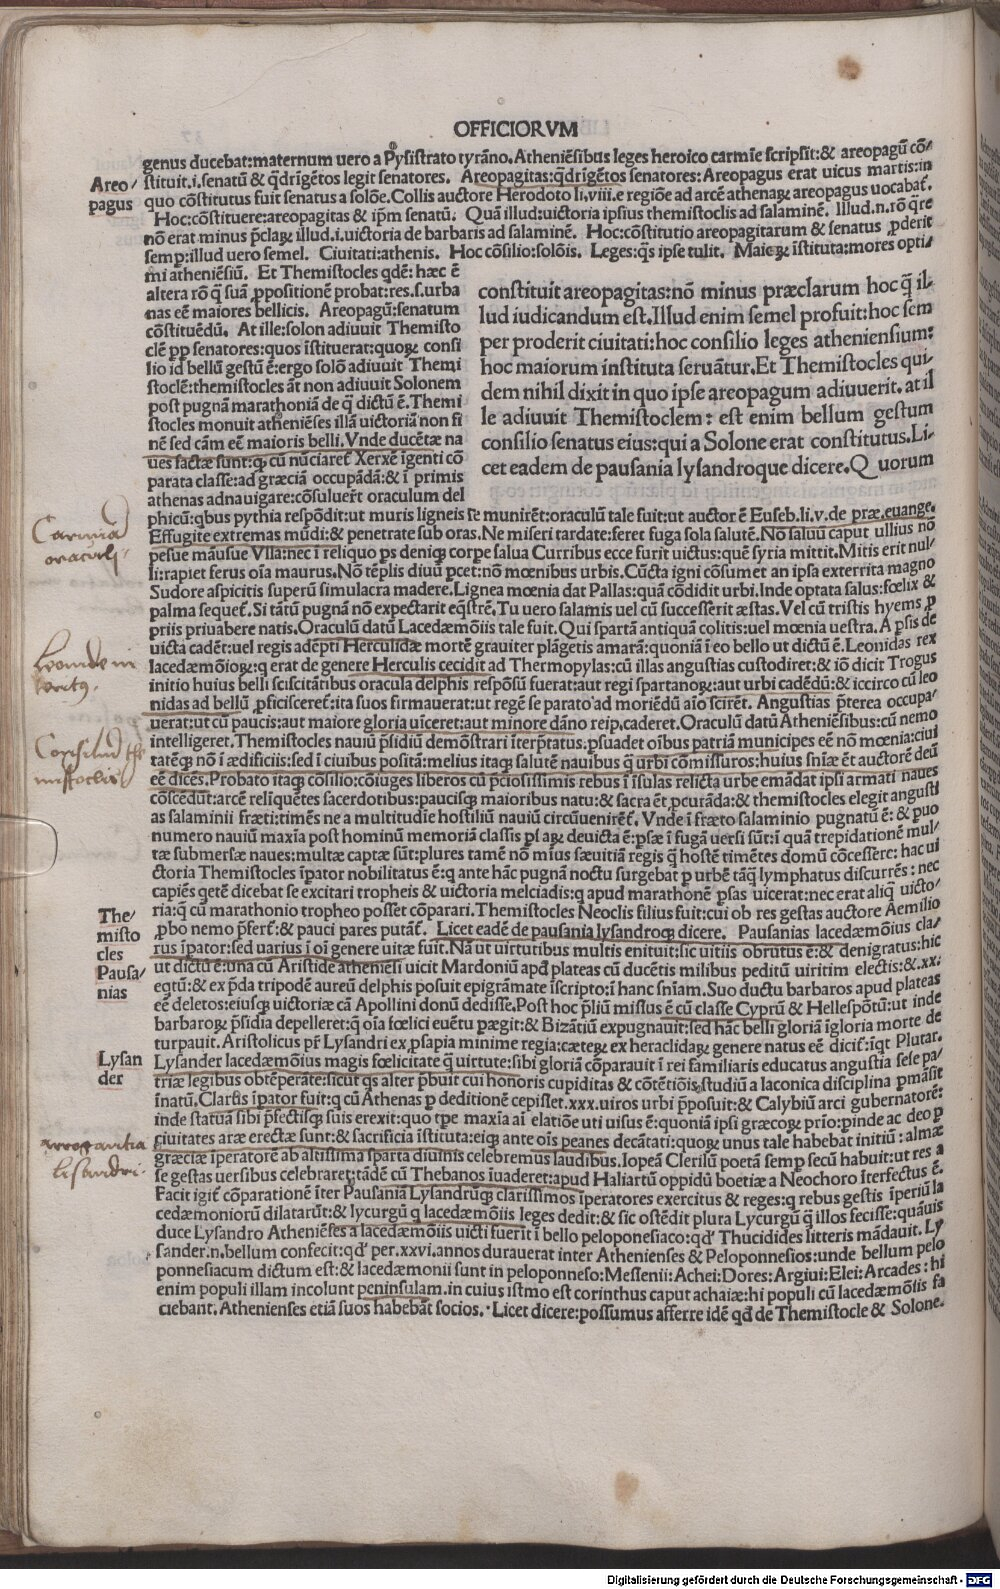 OFFICIORVM
genus ducebat:maternum uero a Pysistrato tyrāno.Atheniēsibus leges heroico carmīe scripsit:& areopagū cō/
stituit.i.senatū & q̄drīgētos legit senatores. Areopagitas:q̄drīgētos senatores:Areopagus erat uicus martis:in
Areo/
pagus
quo cōstitutus fuit senatus a solōe.Collis auctore Herodoto li.viii.e regiōe ad arcē athenaꝝ areopagus uocabat̄.
Hoc:cōstituere:areopagitas & ip̄m senatū. Quā illud:uictoria ipsius themistoclis ad salaminē. Illud.n.rō q̄re
nō erat minus p̄claꝝ illud.i.uictoria de barbaris ad salaminē. Hoc:cōstitutio areopagitarum & senatus ꝓderit
semp:illud uero semel. Ciuitati:athenis. Hoc cōsilio:solōis. Leges:q̄s ipse tulit. Maioꝝ īstituta:mores opti/
mi atheniēsiū. Et Themistocles qdē: hæc ē
altera rō q̄ suā ꝓpositionē probat:res.s.urba
nas eē maiores bellicis. Areopagū:senatum
cōstituēdū. At ille:solon adiuuit Themisto
clē pp senatores:quos īstituerat:quoꝝ consi
lio id bellū gestū ē:ergo solō adiuuit Themi
stoclē:themistocles āt non adiuuit Solonem
post pugnā marathoniā de q̄ dictū ē.Themi
stocles monuit atheniēses illā uictoriā non fi
nē sed cām eē maioris belli.Vnde ducētæ na
ues factæ sunt:qꝫ cū nūciaret̄ Xerxē īgenti cō
parata classe:ad græciā occupādā:& ī primis
athenas adnauigare:cōsuluert̄ oraculum del
constituit areopagitas:nō minus præclarum hoc q̄ il-
lud iudicandum est.Illud enim semel profuit:hoc sem
per proderit ciuitati:hoc consilio leges atheniensium:
hoc maiorum instituta seruātur.Et Themistocles qui-
dem nihil dixit in quo ipse areopagum adiuuerit.at il
le adiuuit Themistoclem: est enim bellum gestum
consilio senatus eius:qui a Solone erat constitutus.Li-
cet eadem de pausania lysandroque dicere.Q uorum
phicū:qbus pythia respōdit:ut muris ligneis se munirēt:oraculū tale fuit:ut auctor ē Euseb.li.v.de præ.euange.
Carmina
oraculi.
Effugite extremas mūdi:& penetrate sub oras.Ne miseri tardate:feret fuga sola salutē.Nō saluū caput ullius nō
pesue māusue Vlla:nec ī reliquo ps deniqꝫ corpe salua Curribus ecce furit uictus:quē syria mittit.Mitis erit nul-
li:rapiet ferus oīa maurus.Nō tēplis diuū pcet:nō mœnibus urbis.Cūcta igni cōsumet an ipsa exterrita magno
Sudore aspicitis superū simulacra madere.Lignea mœnia dat Pallas:quā cōdidit urbi.Inde optata salus:fœlix &
palma sequet̄.Si tātū pugnā nō expectarit eq̄strē.Tu uero salamis uel cū successerit æstas.Vel cū tristis hyems ꝓ
priis priuabere natis.Oraculū datū Lacedæmōiis tale fuit.Qui spartā antiquā colitis:uel mœnia uestra.A psis de
uicta cadēt:uel regis adēpti Herculidæ mortē grauiter plāgetis amarā:quoniā ī eo bello ut dictū ē.Leonidas rex
lacedæmōioꝝ:q erat de genere Herculis cecidit ad Thermopylas:cū illas angustias custodiret:& iō dicit Trogus
initio huius belli sciscitātibus oracula delphis respōsū fuerat:aut regi spartanoꝝ:aut urbi cadēdū:& iccirco cū leo
nidas ad bellū ꝓficisceret̄:ita suos firmauerat:ut regē se parato ad moriēdū aīo scirēt. Angustias p̄terea occupa/
uerat:ut cū paucis:aut maiore gloria uīceret:aut minore dāno reip.caderet.Oraculū datū Atheniēsibus:cū nemo
Consiliū the
mistoclis
intelligeret.Themistocles nauiū p̄sidiū demōstrari īterp̄tatus.psuadet oībus patriā municipes eē nō mœnia:ciui
tatēqꝫ nō ī ædificiis:sed ī ciuibus positā:melius itaqꝫ salutē nauibus q̄ urbi cōmissuros:huius sniæ ēt auctorē deū
eē dicēs.Probato itaqꝫ cōsilio:cōiuges liberos cū p̄ciosissimis rebus ī īsulas relicta urbe emādat ipsi armati naues
cōscēdūt:arcē relīquētes sacerdotibus:paucisqꝫ maioribus natu:& sacra ēt ꝓcurāda:& themistocles elegit angusti
as salaminii fræti:timēs ne a multitudīe hostiliū nauiū circūuenirēt̄. Vnde ī fræto salaminio pugnatū ē: & puo
numero nauiū maxīa post hominū memoriā classis psaꝝ deuicta ē:psæ ī fugā uersi sūt:ī quā trepidationē mul/
tæ submersæ naues:multæ captæ sūt:plures tamē nō mīus sæuitiā regis q̄ hostē timētes domū cōcesserc: hac ui
ctoria Themistocles īpator nobilitatus ē:q ante hāc pugnā noctu surgebat ꝑ urbē tāqꝫ lymphatus discurrēs : nec
capiēs qetē dicebat se excitari tropheis & uictoria melciadis:q apud marathonē psas uicerat:nec erat aliq̄ uicto/
The/
misto
cles
ria:q̄ cū marathonio tropheo posset cōparari.Themistocles Neoclis filius fuit:cui ob res gestas auctore Aemilio
ꝓbo nemo p̄fert̄:& pauci pares putāt̄. Licet eadē de pausania lysandroqꝫ dicere. Pausanias lacedæmōius cla/
Pausa/
nias
rus īpator:sed uarius ī oī genere uitæ fuit.Nā ut uirtutibus multis enituit:sic uitiis obrutus ē:& denigratus:hic
ut dictū ē:una cū Aristide atheniēsi uicit Mardoniū apd plateas cū ducētis milibus peditū uiritim electis:&.xx:
egtū:& ex p̄da tripodē aureū delphis posuit epigrāmate īscripto:ī hanc sniam.Suo ductu barbaros apud plateas
eē deletos:eiusqꝫ uictoriæ cā Apollini donū dedisse.Post hoc p̄liū missus ē cū classe Cyprū & Hellespōtū:ut inde
barbaroꝝ p̄sidia depelleret:q̄ oīa fœlici euētu pægit:& Bizātiū expugnauit:sed hāc belli gloriā īgloria morte de
turpauit.Aristolicus pr̄ Lysandri ex ꝓsapia minime regia:cæteꝝ ex heraclidaꝝ genere natus eē dicit̄:īqt Plutar.
Lysan
der
Lysander lacedæmōius magis fœlicitate q̄ uirtute:sibi gloriā cōparauit ī rei familiaris educatus angustia sese pa/
triæ legibus obtēperāte:sicut qs alter p̄buit cui honoris cupiditas & cōtētiōis studiū a laconica disciplina ꝑmāsit
īnatū.Clarus īpator fuit:q cū Athenas ꝑ deditionē cepisset.xxx.uiros urbi p̄posuit:& Calybiū arci gubernatorē:
inde statuā sibi p̄fectisqꝫ suis erexit:quo tpe maxīa aī elatiōe uti uisus ē:quoniā ipsi græcoꝝ prīo:pinde ac deo ꝑ
arrogantia
lisandri.
ciuitates aræ erectæ sunt:& sacrificia īstituta:eiqꝫ ante oīs peanes decātati:quoꝝ unus tale habebat initiū : almæ
græciæ īperatorē ab altissima sparta diuinis celebremus laudibus.Iopeā Clerilū poetā semp secū habuit:ut res a
se gestas uersibus celebraret:tādē cū Thebanos īuaderet:apud Haliartū oppidū boetiæ a Neochoro īterfectus ē.
Facit igit̄ cōparationē īter Pausaniā Lysandrūqꝫ clarissimos īperatores exercitus & reges:q rebus gestis īperiū la
cedæmoniorū dilatarūt:& lycurgū q lacedæmōiis leges dedit:& sic ostēdit plura Lycurgū q̄ illos fecisse:quāuis
duce Lysandro Atheniēses a lacedæmōiis uicti fuerīt ī bello peloponesiaco:qd' Thucidides litteris mādauit. Ly
sander.n.bellum confecit:qd' per.xxvi.annos durauerat inter Athenienses & Peloponnesios:unde bellum pelo
ponnesiacum dictum est:& lacedæmonii sunt in peloponneso:Messenii:Achei:Dores:Argiui:Elei:Arcades : hi
enim populi illam incolunt peninsulam.in cuius istmo est corinthus caput achaiæ:hi populi cū lacedæmōiis fa
ciebant.Athenienses etiā suos habebāt socios. Licet dicere:possumus afferre idē qd de Themistocle & Solone.
Digitalisierung gefördert durch die Deutsche Forschungsgemeinschaft - DFG